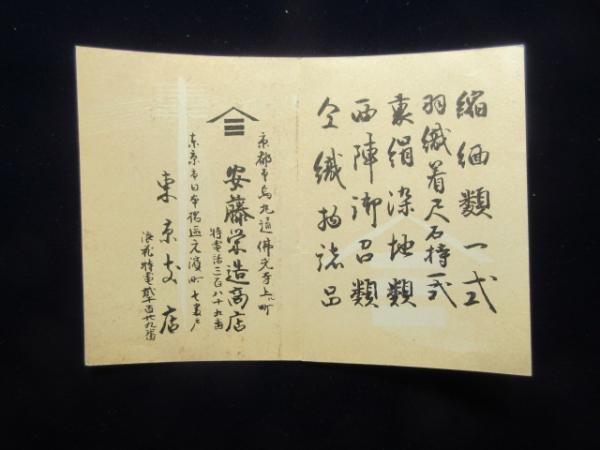 縮緬類一式
羽織着尺石持一式
裏絹染地類
西陣御召類
仝織物諸品
京都市烏丸通佛光寺上ル町
安藤栄造商店
特電話三百八十九番
東京市日本橋区元濱町七番戸
東京支店
浪花特電